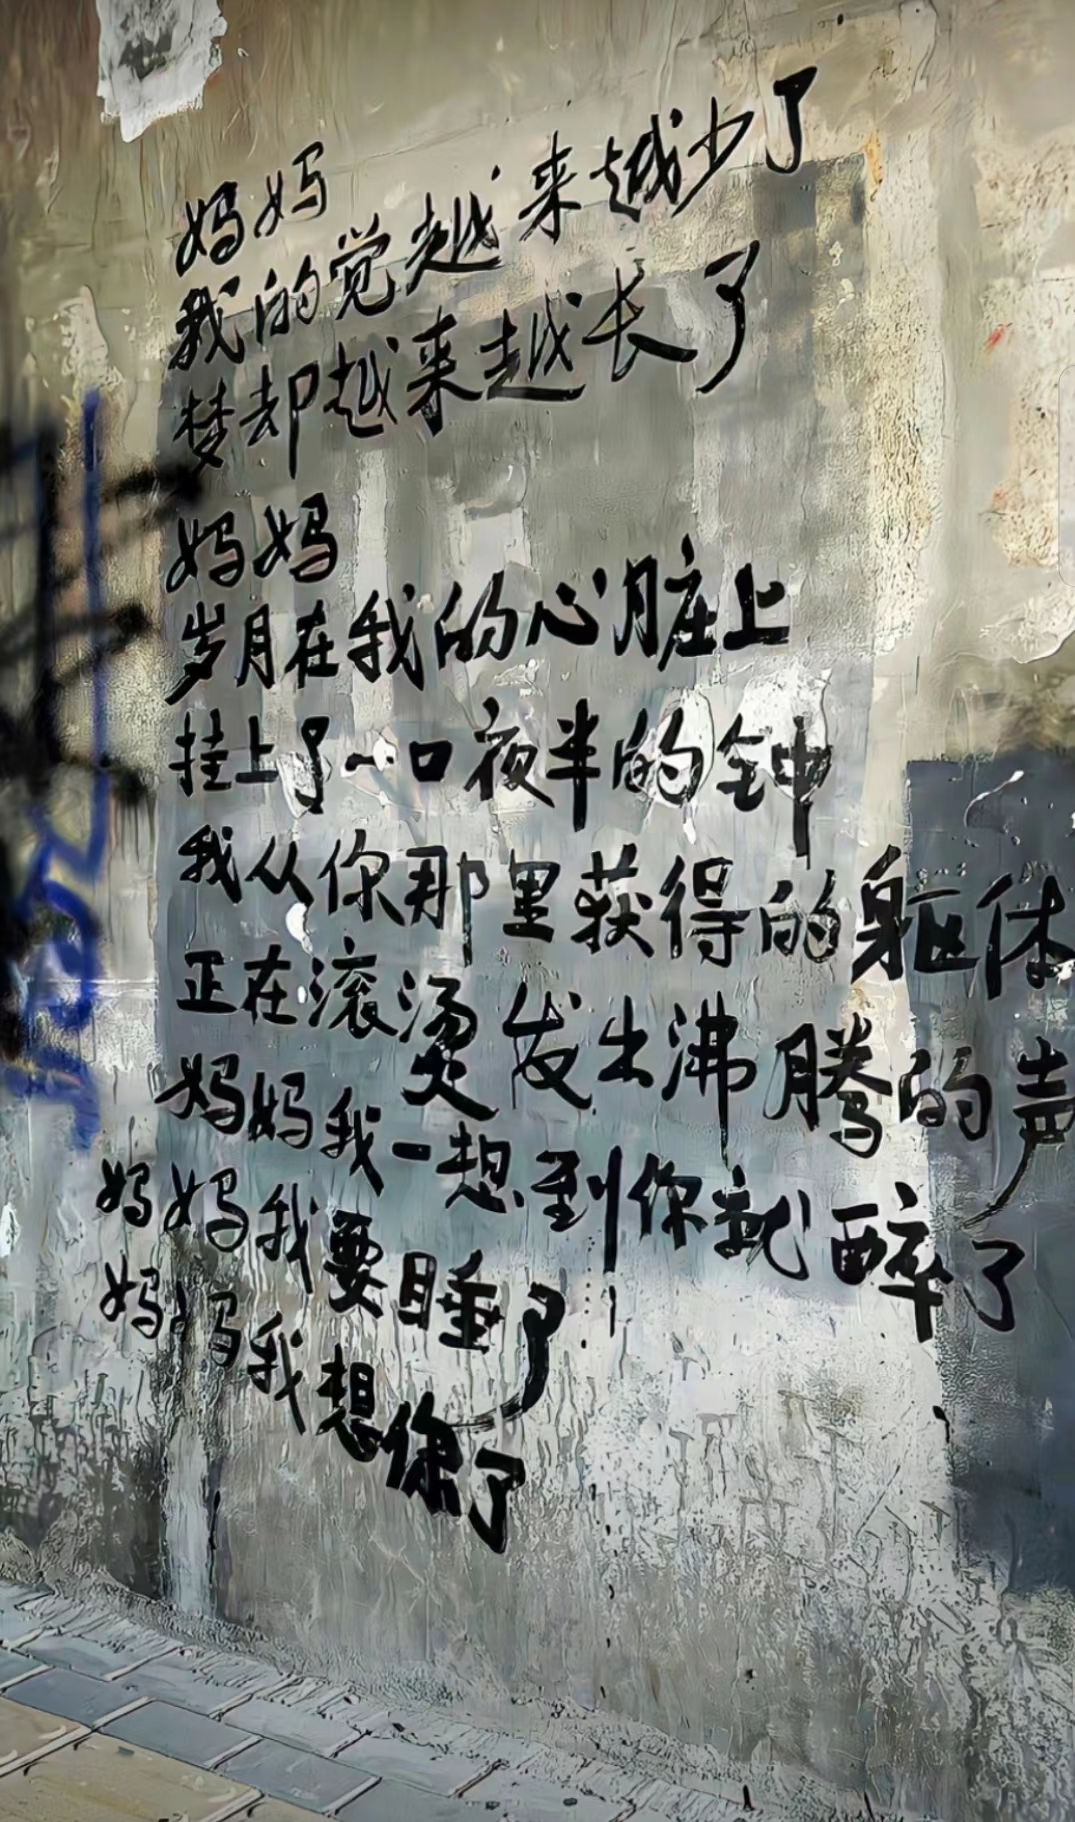 妈妈
我的觉越来越少了
梦却越来越长了
妈妈
岁月在我的心脏上
挂上了一口夜半的钟
我从你那里获得的躯体
正在滚烫发出沸腾的声
妈妈我一想到你就醉了
妈妈我要睡了
妈妈我想你了